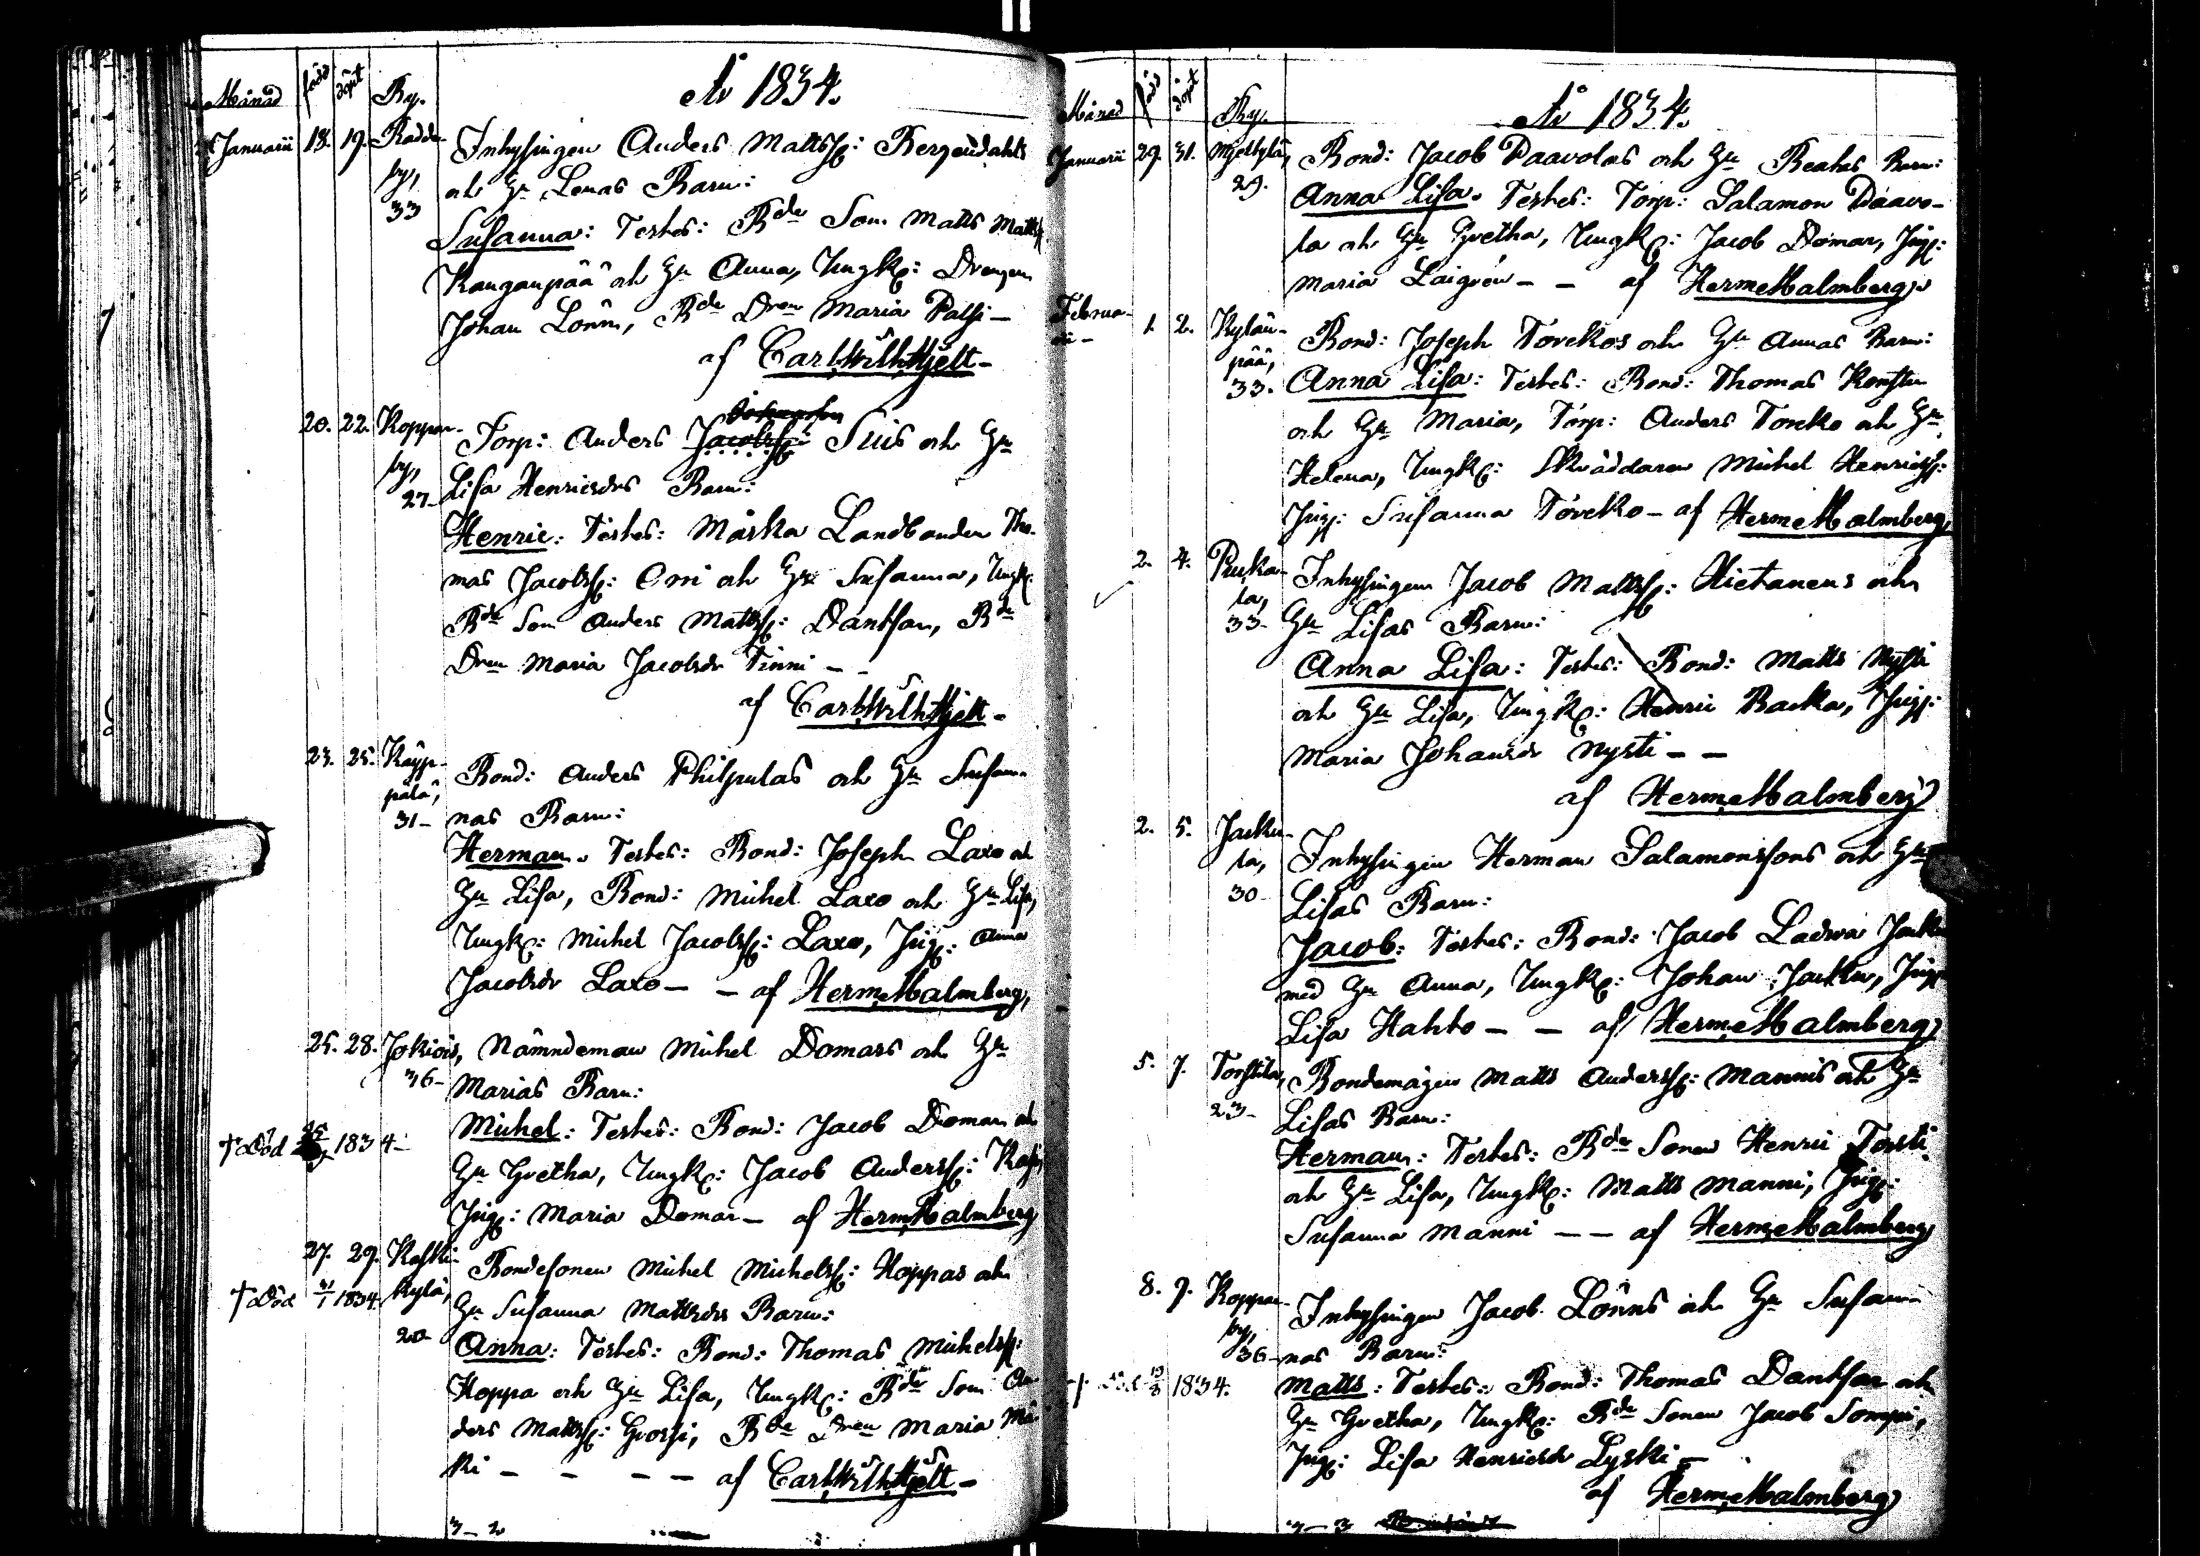 Månad född döpt By. År 1834.
Januarii 18. 19. Radde- Inhysingen Anders Mattsß: Bergendahls
by, och H:u Lenas Barn:
33 Susanna: Testes: Bde Son Matts Mattsß:
Kanganpää och H:u Anna, Ungk: Drengen
Johan Lönn, Bde Dren Maria Palsi —
af Carl Wilh. Hjelt —
Johansson
20. 22. Koppar- Torp: Anders Jacobsß: Sius och H:u
by, Lisa Henricsdrs Barn:
27 — Henric: Testes: Måska Landbonden Tho-
mas Jacobsß: Oni och H:u Susanna, Ungk:
Bde Son Anders Mattsß: Dantsan, Bde
Dren Maria Jacobsdr Tinni — —
af Carl Wilh. Hjelt —
23. 25. Käyp- Bond: Anders Philpulas och H:u Susan-
pälä, nas Barn:
31 — Herman. Testes: Bond: Joseph Laxo och
H:u Lisa, Bond: Michel Laxo och H:u Lisa,
Ungk: Michel Jacobsß: Laxo, Pig: Anna
Jacobsdr Laxo — — af Herm. Malmberg,
25. 28. Jokiois, Nämndeman Michel Domars och H:u
36 — Marias Barn:
† död 1834 — Michel: Testes: Bond: Jacob Domar och
H:u Gretha, Ungk: Jacob Andersß:
Pig: Maria Domar — af Herm. Malmberg
27. 29. Kaski- Bondesonen Michel Michelsß: Hoppas och
† död 31/1 1834. kylä, H:u Susanna Mattsdrs Barn:
20 — Anna: Testes: Bond: Thomas Michelsß:
Hoppa och H:u Lisa, Ungk: Bde Son An-
ders Mattsß: Grossi, Bde Dren Maria Mä-
ki — — — — af Carl Wilh. Hjelt —
3 — 2
Månad född döpt By. År 1834.
Januarii 29. 31. Bond: Jacob Paavolas och H:u Beatas Barn:
29. Anna Lisa. Testes: Torp: Salamon Paavo-
la och H:u Gretha, Ungk: Jacob Domar, Pig:
Maria Laigren — — af Herm. Malmberg,
Februa-
rii — 1. 2. Kylän- Bond: Joseph Torckos och H:u Annas Barn:
pää,
33. Anna Lisa: Testes: Bond: Thomas
och H:u Maria, Torp: Anders Torcko och H:u
Helena, Ungk: Skräddaren Michel Henricsß:
Pig: Susanna Torcko — af Herm. Malmberg,
2. 4. Puka- Inhysingen Jacob Mattsß: Hietanens och
la,
33 — H:u Lisas Barn:
Anna Lisa: Testes: Bond: Matts Nysti
och H:u Lisa, Ungk: Henric Backa, Pig:
Maria Johansdr Nysti — —
af Herm. Malmberg
2. 5. Jacku- Inhysingen Herman Salamonssons och H:u
la,
30 — Lisas Barn:
Jacob: Testes: Bond: Jacob Ladwa
med H:u Anna, Ungk: Johan Pig:
Lisa Hahto — — af Herm. Malmberg
5. 7. Torstila, Bondemågen Matts Andersß: Mannis och H:u
23 — Lisas Barn:
Herman: Testes: Bde Sonen Henric Torsti
och H:u Lisa, Ungk: Matts Manni, Pig:
Susanna Manni — — af Herm. Malmberg
8. 9. Koppar- Inhysingen Jacob Lönns och H:u Susan-
by,
36 — nas Barn:
† död 1834. Matts: Testes: Bond: Thomas Dantsan och
H:u Gretha, Ungk: Bde Sonen Jacob Sompi,
Pig: Lisa Henricsdr Lyski —
af Herm. Malmberg
3 — 3